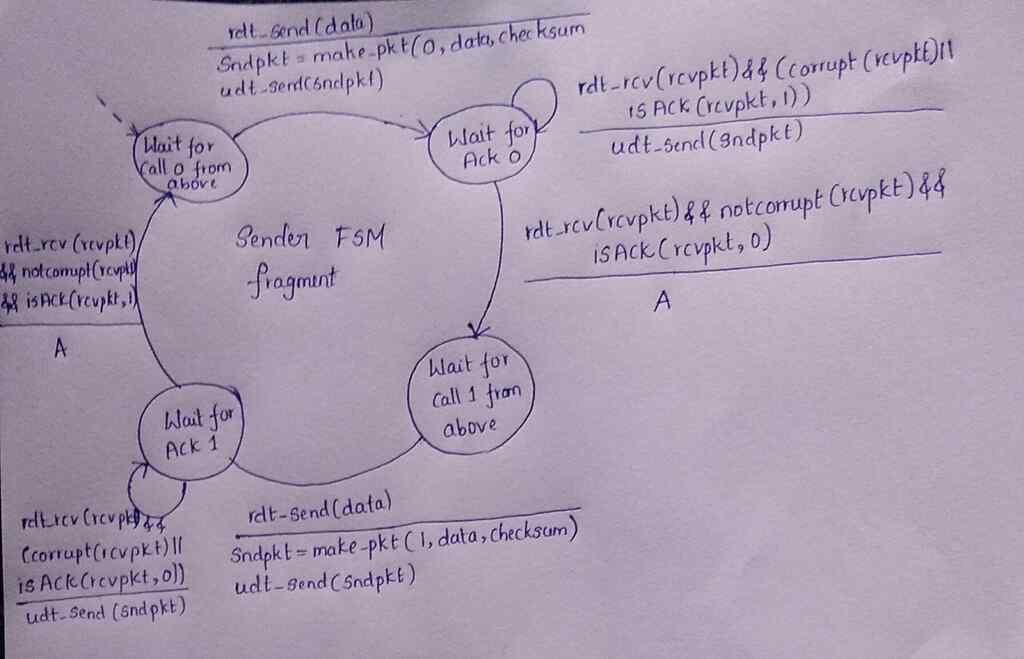 rdt_send(data)
Sndpkt = make_pkt(0, data, checksum
udt_send(sndpkt)
rdt_rcv(rcvpkt) && (corrupt(rcvpkt)||
isACK(rcvpkt,1))
udt_send(sndpkt)
Wait for
call 0 from
above
Wait for
Ack 0
rdt_rcv(rcvpkt) && notcorrupt(rcvpkt) &&
isACK(rcvpkt,0)
Λ
Sender FSM
fragment
rdt_rcv(rcvpkt)
&& notcorrupt(rcvpkt)
&& isACK(rcvpkt,1)
Λ
Wait for
call 1 from
above
Wait for
ACK 1
rdt_rcv(rcvpkt) &&
(corrupt(rcvpkt)||
isACK(rcvpkt,0))
udt_send(sndpkt)
rdt_send(data)
Sndpkt = make_pkt(1, data, checksum)
udt_send(sndpkt)